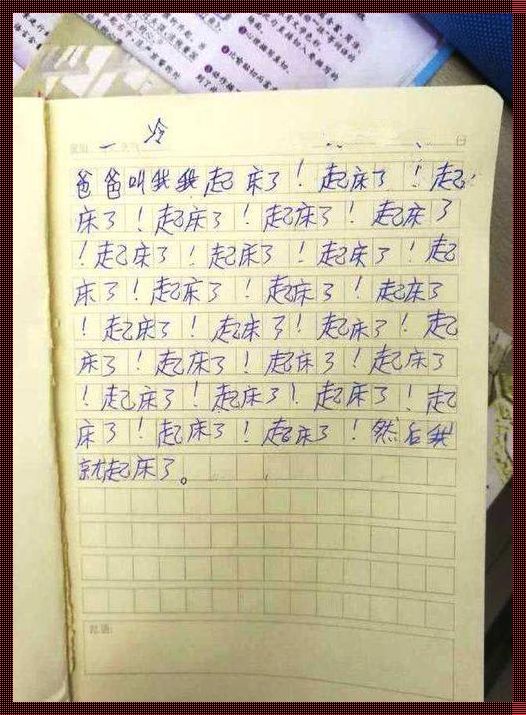 星期 一 天气 冷
爸爸叫我我起床了！起床了！起
床了！起床了！起床了！起床了
！起床了！起床了！起床了！起
床了！起床了！起床了！起床了
！起床了！起床了！起床了！起
床了！起床了！起床了！起床了
！起床了！起床了！起床了！起
床了！起床了！起床了！然后我
就起床了。
评语: